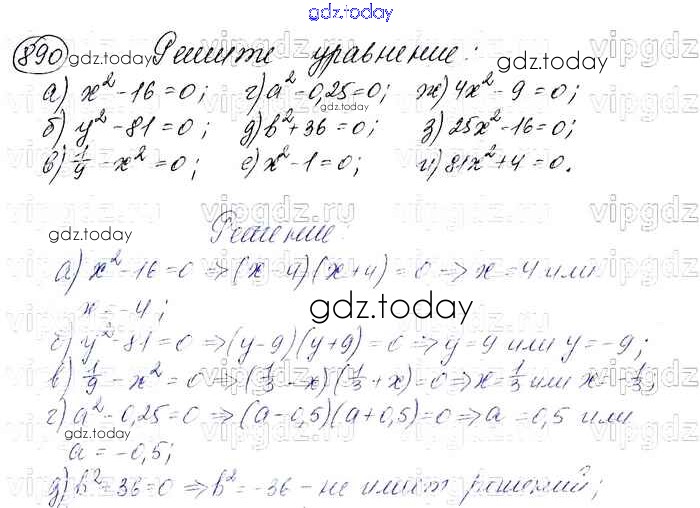 gdz.today
890 gdz.today Решите уравнение:
а) x² - 16 = 0; г) a² - 0,25 = 0; ж) 4x² - 9 = 0;
gdz.today
б) y² - 81 = 0; д) b² + 36 = 0; з) 25x² - 16 = 0;
в) 1/9 - x² = 0; е) x² - 1 = 0; и) 81x² + 4 = 0.
vipgdz.ru
gdz.today Решение:
а) x² - 16 = 0 => (x - 4)(x + 4) = 0 => x = 4 или
x = -4;
gdz.today
б) y² - 81 = 0 => (y - 9)(y + 9) = 0 => y = 9 или y = -9;
в) 1/9 - x² = 0 => (1/3 - x)(1/3 + x) = 0 => x = 1/3 или x = -1/3;
г) a² - 0,25 = 0 => (a - 0,5)(a + 0,5) = 0 => a = 0,5 или
gdz.today
a = -0,5;
д) b² + 36 = 0 => b² = -36 - не имеет решений;